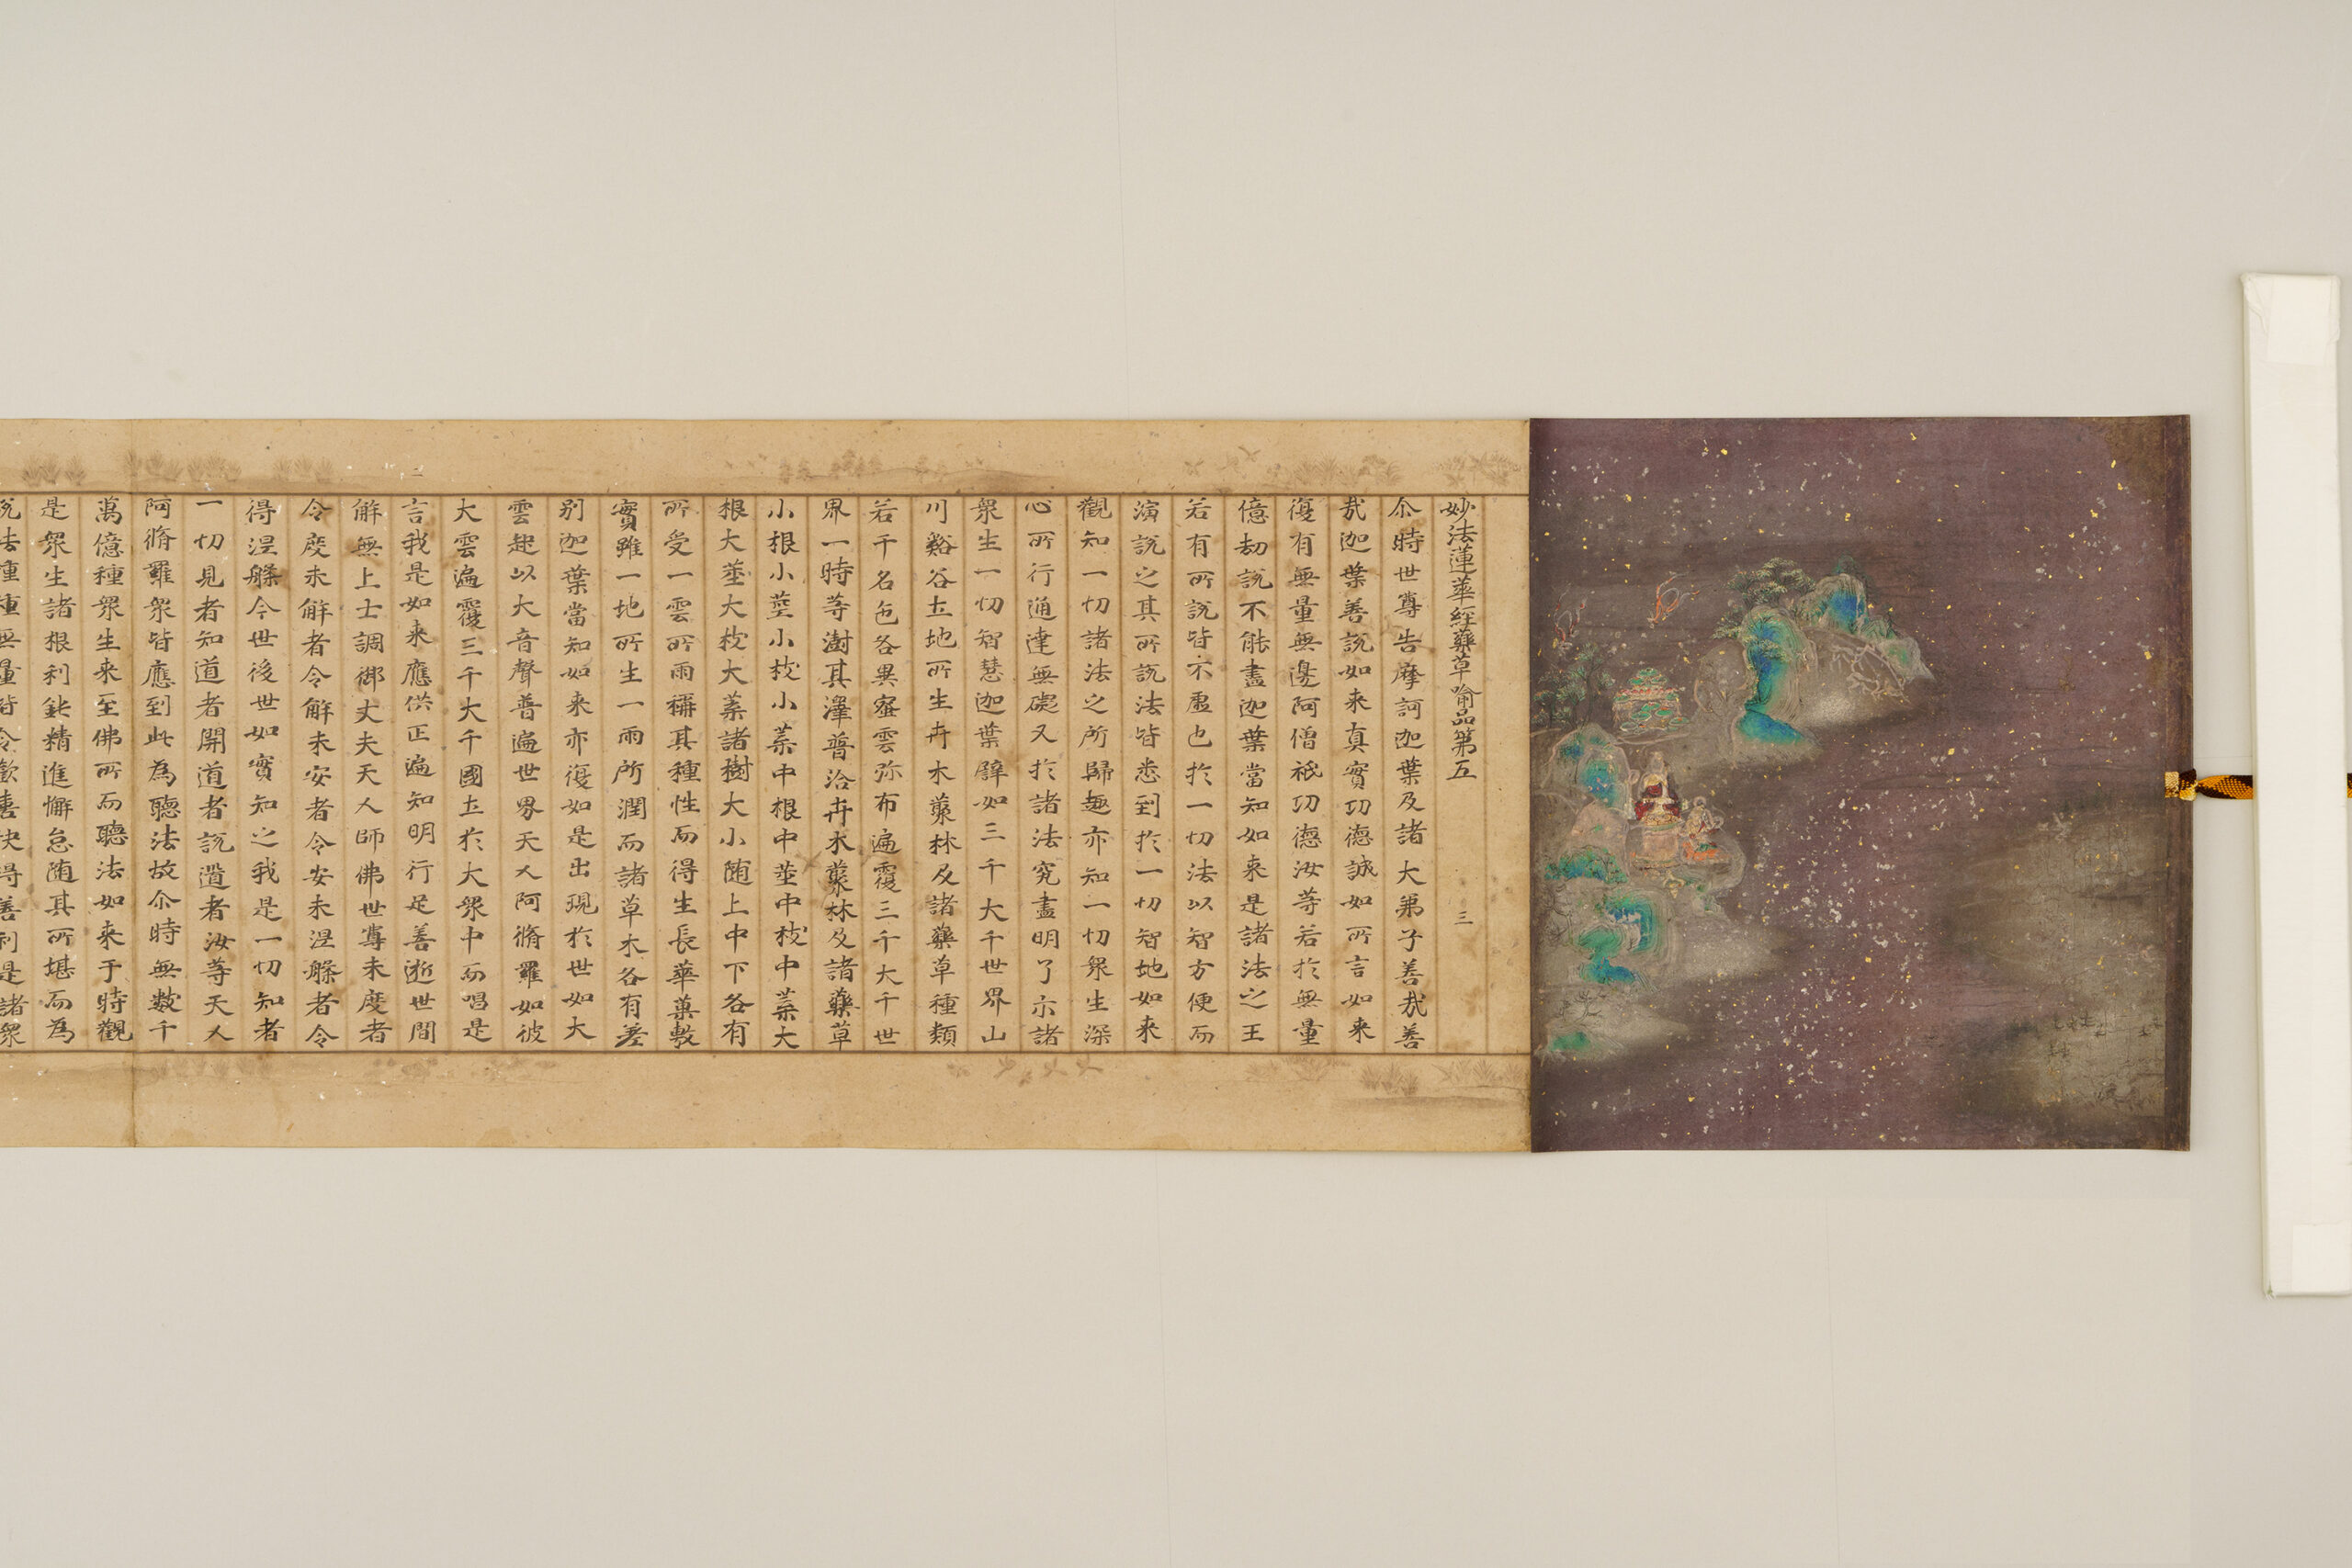 妙法蓮華經藥草喻品第五 三
尒時世尊告摩訶迦葉及諸大弟子善哉善
哉迦葉善說如来真實功德誠如所言如来
復有無量無邊阿僧祇功德汝等若於無量
億劫說不能盡迦葉當知如来是諸法之王
若有所說皆不虛也於一切法以智方便而
演說之其所說法皆悉到於一切智地如来
觀知一切諸法之所歸趣亦知一切衆生深
心所行通達無礙又於諸法究盡明了示諸
衆生一切智慧迦葉譬如三千大千世界山
川谿谷土地所生卉木藂林及諸藥草種類
若干名色各異密雲弥布遍覆三千大千世
界一時等澍其澤普洽卉木藂林及諸藥草
小根小莖小枝小葉中根中莖中枝中葉大
根大莖大枝大葉諸樹大小随上中下各有
所受一雲所雨稱其種性而得生長華菓敷
實雖一地所生一雨所潤而諸草木各有差
別迦葉當知如来亦復如是出現於世如大
雲起以大音聲普遍世界天人阿脩羅如彼
大雲遍覆三千大千國土於大衆中而唱是
言我是如来應供正遍知明行足善逝世間
解無上士調御丈夫天人師佛世尊未度者
令度未解者令解未安者令安未涅槃者令
得涅槃今世後世如實知之我是一切知者
一切見者知道者開道者說道者汝等天人
阿脩羅衆皆應到此為聽法故尒時無數千
萬億種衆生来至佛所而聽法如来于時觀
是衆生諸根利鈍精進懈怠随其所堪而為
說法種種無量皆令歡喜快得善利是諸衆